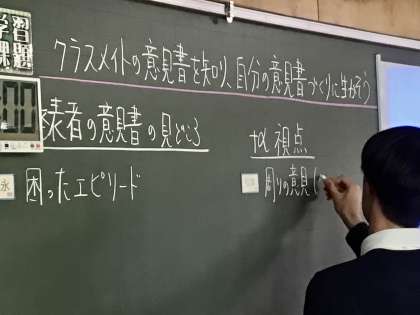 学習課題
クラスメイトの意見書を知り、自分の意見書づくりに生かそう
表者の意見書の見どころ
+α 視点
困ったエピソード
周りの意見